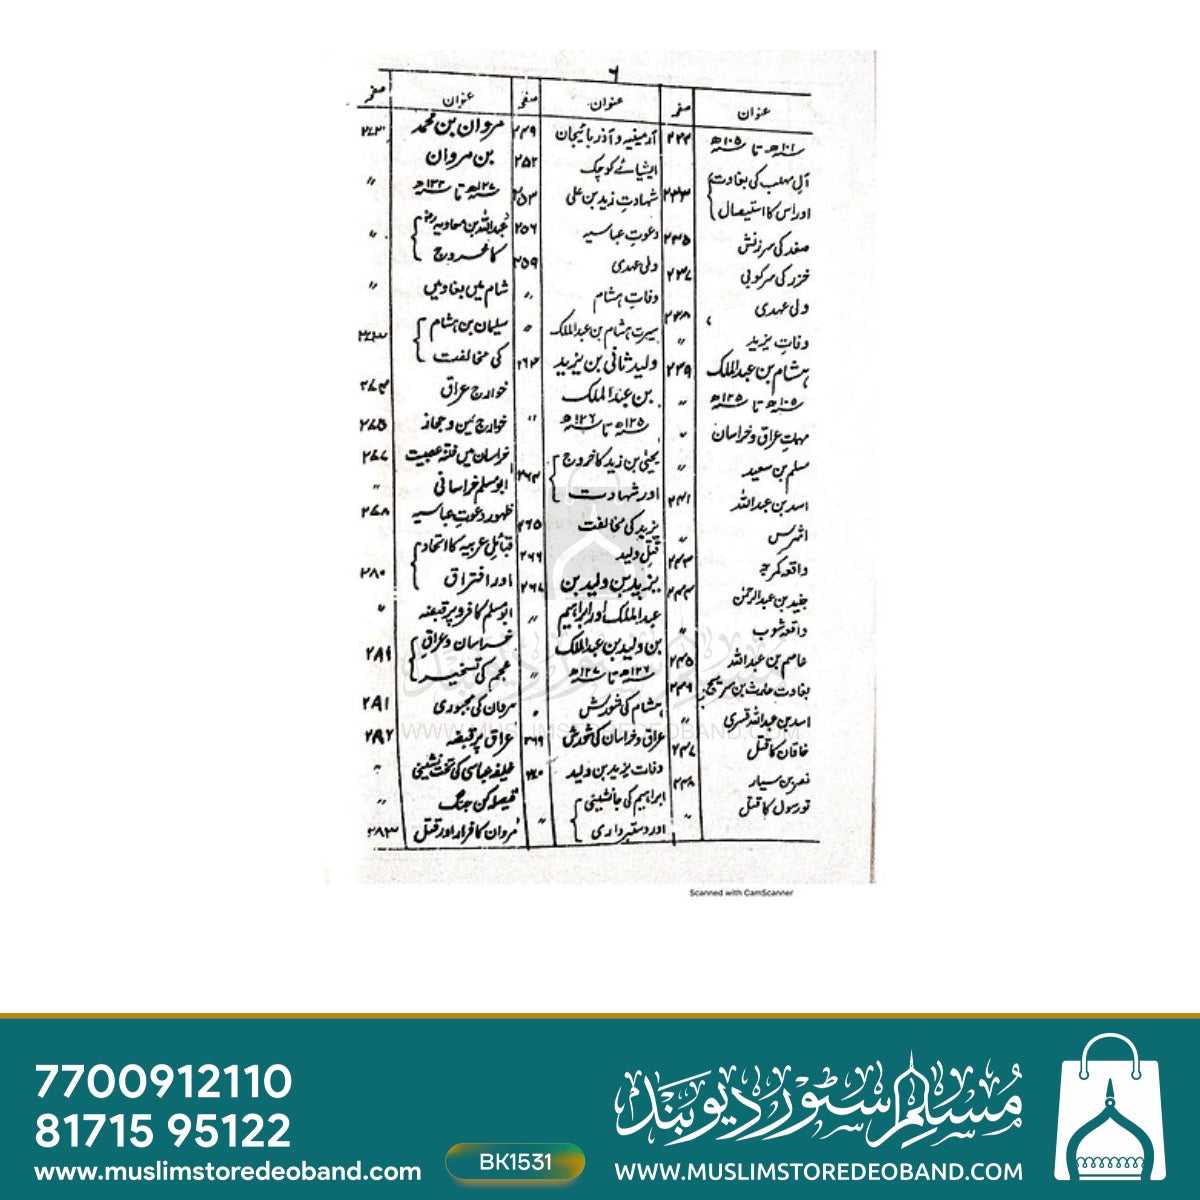 ۶
عنوان
صفحہ
۱۰۱ھ تا ۱۰۵ھ
۲۳۳
آلِ مہلب کی بغاوت
اور اس کا استیصال
صغد کی سرزنش
۲۳۵
خزر کی سرکوبی
۲۳۷
ولی عہدی
۲۳۸
وفات یزید
〃
ہشام بن عبدالملک
۲۳۹
۱۰۵ھ تا ۱۲۵ھ
〃
مہمات عراق و خراسان
مسلم بن سعید
〃
اسد بن عبداللہ
۲۴۱
اشرس
〃
واقعہ کمرجہ
۲۴۳
جنید بن عبدالرحمٰن
۲۴۴
واقعہ شوب
〃
عاصم بن عبداللہ
۲۴۵
بغاوت حارث بن سریج
۲۴۶
اسد بن عبداللہ قسری
〃
خاقان کا قتل
۲۴۷
نصر بن سیار
۲۴۸
تورسول کا قتل
〃
عنوان
صفحہ
آرمینیہ و آذربائیجان
۲۴۹
ایشیائے کوچک
۲۵۲
شہادتِ زید بن علی
۲۵۳
دعوتِ عباسیہ
۲۵۶
ولی عہدی
۲۵۹
وفاتِ ہشام
〃
سیرت ہشام بن عبدالملک
〃
ولید ثانی بن یزید
بن عبدالملک
۱۲۵ھ تا ۱۲۶ھ
〃
یحییٰ بن زید کا خروج
اور شہادت
یزید کی مخالفت
۲۶۵
قتلِ ولید
۲۶۶
یزید بن ولید بن
۲۶۷
عبدالملک اور ابراہیم
〃
بن ولید بن عبدالملک
۱۲۶ھ تا ۱۲۷ھ
〃
ہشام کی شورش
عراق و خراسان کی شورش
۲۶۹
وفات یزید بن ولید
۲۷۰
ابراہیم کی جانشینی
اور دستبرداری
〃
عنوان
صفحہ
مروان بن محمد
بن مروان
۱۲۷ھ تا ۱۳۲ھ
〃
عبداللہ بن معاویہ
کا خروج
〃
شام میں بغاوتیں
〃
سلیمان بن ہشام
کی مخالفت
۲۷۳
خوارج عراق
۲۷۴
خوارج یمن و حجاز
۲۷۵
خراسان میں فتنہ عصبیت
۲۷۷
ابو مسلم خراسانی
〃
ظہور دعوتِ عباسیہ
۲۷۸
قبائلِ عربیہ کا اتحاد
اور افتراق
۲۸۰
ابو مسلم کا مرو پر قبضہ
〃
خراسان و عراقِ
عجم کی تسخیر
۲۸۱
مروان کی مجبوری
۲۸۱
عراق پر قبضہ
۲۸۲
خلیفہ عباسی کی تخت نشینی
〃
فیصلہ کن جنگ
〃
مروان کا فرار اور قتل
۲۸۳
مسلم سٹور دیوبند
WWW.MUSLIMSTOREDEOBAND.COM
Scanned with CamScanner
7700912110
81715 95122
www.muslimstoredeoband.com
BK1531
مسلم سٹور دیوبند
WWW.MUSLIMSTOREDEOBAND.COM